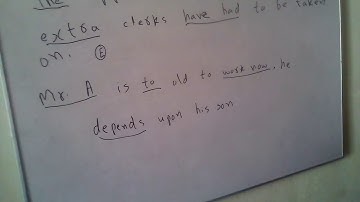 The
extra clerks have had to be taken
on. E
Mr. A is to old to work now, he
depends upon his son